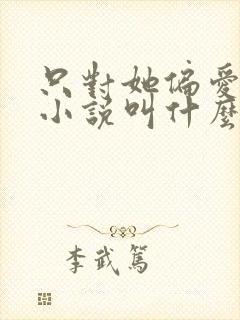 只對她偏愛
小說叫什麼
李武篤